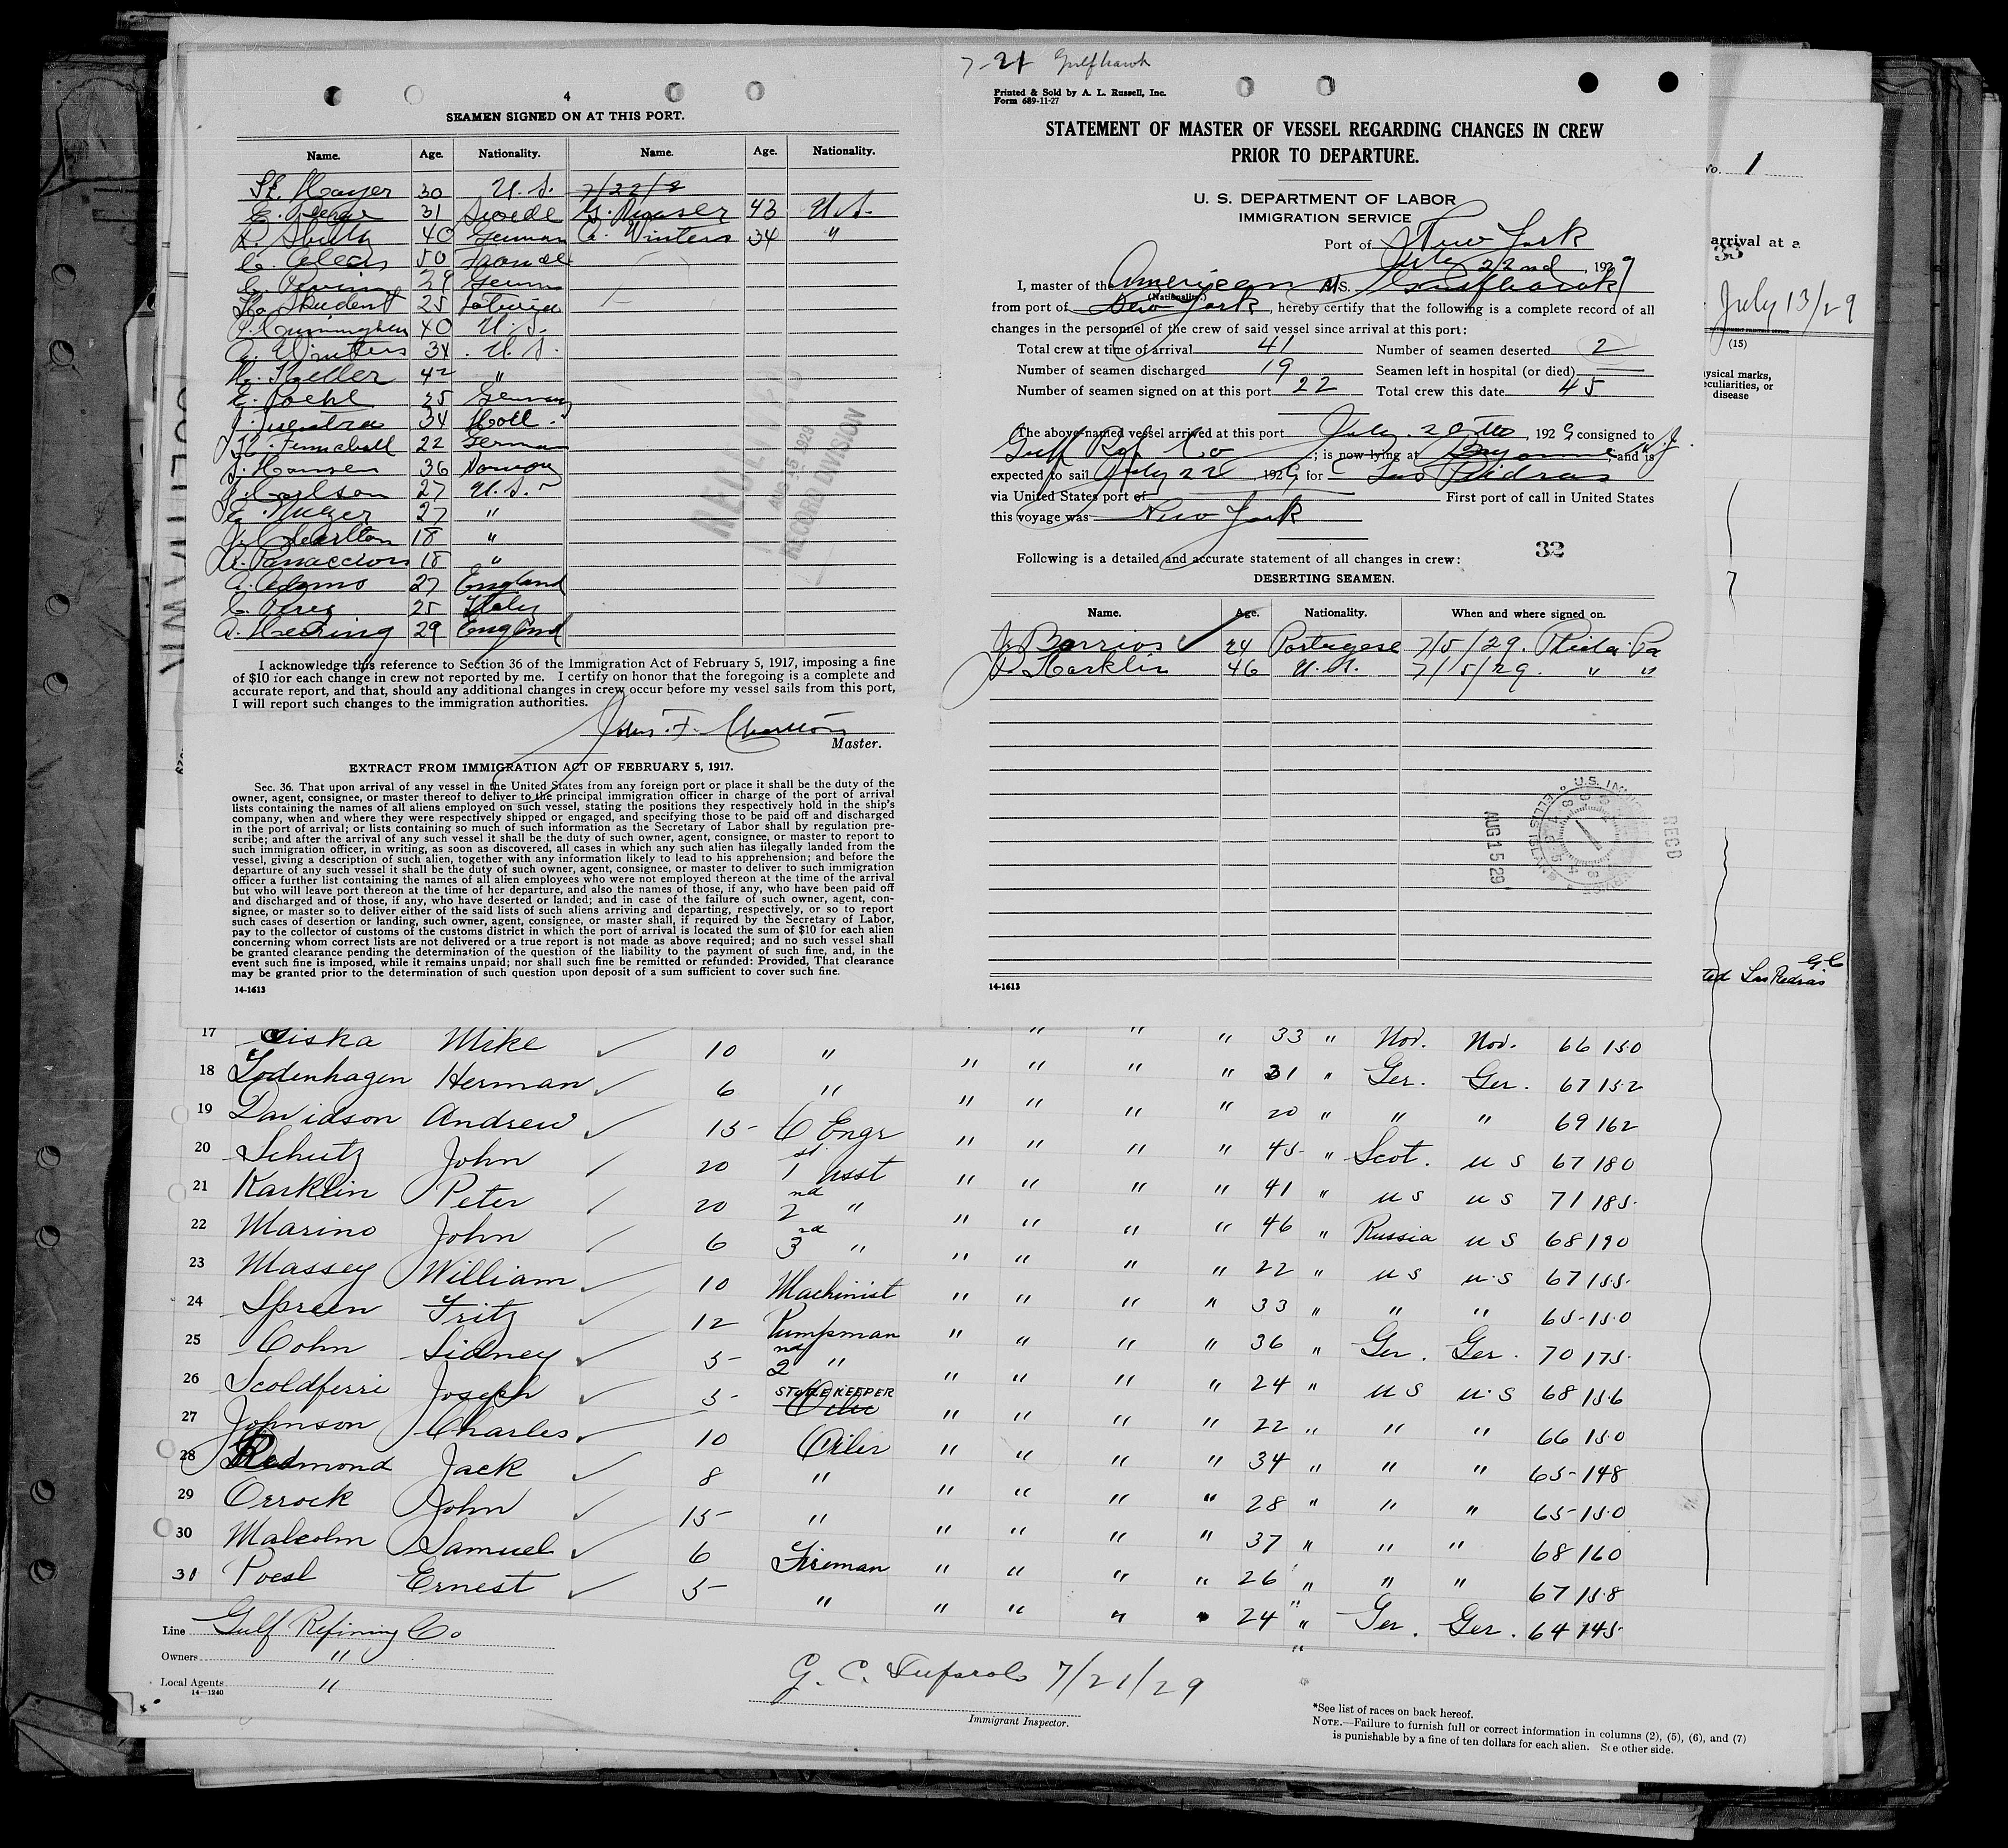 4
SEAMEN SIGNED ON AT THIS PORT.
Name. Age. Nationality. Name. Age. Nationality.
30 U. S. 7/22/2
31 Swede G. 43 U.S.
40 German A. Winters 34 "
50
29
H. Student 25
Cunningham 40 U. S.
A. Winters 34 U. S.
H. Keller 42 "
E. Poehl 25 German
34 Holl.
22 German
Hansen 36 Norway
Carlson 27 U. S.
27 "
J. Charlton 18 "
18 "
A. Adams 27 England
25 Italy
29 England
I acknowledge this reference to Section 36 of the Immigration Act of February 5, 1917, imposing a fine
of $10 for each change in crew not reported by me. I certify on honor that the foregoing is a complete and
accurate report, and that, should any additional changes in crew occur before my vessel sails from this port,
I will report such changes to the immigration authorities.
John F. Charlton
Master.
EXTRACT FROM IMMIGRATION ACT OF FEBRUARY 5, 1917.
Sec. 36. That upon arrival of any vessel in the United States from any foreign port or place it shall be the duty of the
owner, agent, consignee, or master thereof to deliver to the principal immigration officer in charge of the port of arrival
lists containing the names of all aliens employed on such vessel, stating the positions they respectively hold in the ship's
company, when and where they were respectively shipped or engaged, and specifying those to be paid off and discharged
in the port of arrival; or lists containing so much of such information as the Secretary of Labor shall by regulation pre-
scribe; and after the arrival of any such vessel it shall be the duty of such owner, agent, consignee, or master to report to
such immigration officer, in writing, as soon as discovered, all cases in which any such alien has illegally landed from the
vessel, giving a description of such alien, together with any information likely to lead to his apprehension; and before the
departure of any such vessel it shall be the duty of such owner, agent, consignee, or master to deliver to such immigration
officer a further list containing the names of all alien employees who were not employed thereon at the time of the arrival
but who will leave port thereon at the time of her departure, and also the names of those, if any, who have been paid off
and discharged and of those, if any, who have deserted or landed; and in case of the failure of such owner, agent, con-
signee, or master so to deliver either of the said lists of such aliens arriving and departing, respectively, or so to report
such cases of desertion or landing, such owner, agent, consignee, or master shall, if required by the Secretary of Labor,
pay to the collector of customs of the customs district in which the port of arrival is located the sum of $10 for each alien
concerning whom correct lists are not delivered or a true report is not made as above required; and no such vessel shall
be granted clearance pending the determination of the question of the liability to the payment of such fine, and, in the
event such fine is imposed, while it remains unpaid; nor shall such fine be remitted or refunded: Provided, That clearance
may be granted prior to the determination of such question upon deposit of a sum sufficient to cover such fine.
14-1613
RECORD DIVISION
7-21 Gulfhawk
Printed & Sold by A. L. Russell, Inc.
Form 689-11-27
STATEMENT OF MASTER OF VESSEL REGARDING CHANGES IN CREW
PRIOR TO DEPARTURE.
U. S. DEPARTMENT OF LABOR
IMMIGRATION SERVICE
Port of New York
July 22nd, 1929
I, master of the American S. Gulfhawk
(Nationality.)
from port of New York, hereby certify that the following is a complete record of all
changes in the personnel of the crew of said vessel since arrival at this port:
Total crew at time of arrival 41 Number of seamen deserted 2
Number of seamen discharged 19 Seamen left in hospital (or died)
Number of seamen signed on at this port 22 Total crew this date 45
The above-named vessel arrived at this port July 20th, 1929 consigned to
Gulf Ref Co; is now lying at Bayonne N.J.; and is
expected to sail July 22, 1929 for Las Piedras
via United States port of First port of call in United States
this voyage was New York
Following is a detailed and accurate statement of all changes in crew: 32
DESERTING SEAMEN.
Name. Age. Nationality. When and where signed on.
J. Barrios 24 Portugese 7/5/29. Phila. Pa
P. Karklin 46 U. S. 7/15/29. " "
RECD
AUG 15 29
14-1613
No. 1
arrival at a
33
July 13/29
(15)
ysical marks,
eculiarities, or
disease
G C
ted Las Piedras
17 Siska Mike 10 " " " " " 33 " Nor. Nor. 66 150
18 Lodenhagen Herman 6 " " " " " 31 " Ger. Ger. 67 152
19 Davidson Andrew 15 C Engr " " " " 20 " " " 69 162
20 Schutz John 20 1st Asst " " " " 45 " Scot. U S 67 180
21 Karklin Peter 20 2nd " " " " " 41 " U S U S 71 185
22 Marino John 6 3rd " " " " " 46 " Russia U S 68 190
23 Massey William 10 Machinist " " " " 22 " U S U.S 67 155
24 Spreen Fritz 12 Pumpman " " " " 33 " " " 65 150
25 Cohn Sidney 5 2nd " " " " " 36 " Ger. Ger. 70 175
26 Scoldferri Joseph 5 STOREKEEPER Oiler " " " " 24 " U S U.S 68 156
27 Johnson Charles 10 Oiler " " " " 22 " " " 66 150
28 Redmond Jack 8 " " " " " 34 " " " 65 148
29 Orrock John 15 " " " " " 28 " " " 65 150
30 Malcolm Samuel 6 Fireman " " " " 37 " " " 68 160
31 Poesl Ernest 5 " " " " " 26 " " " 67 158
24 " Ger. Ger. 64 145
Line Gulf Refining Co
Owners "
Local Agents "
14-1240
G. C. 7/21/29
Immigrant Inspector.
*See list of races on back hereof.
NOTE.—Failure to furnish full or correct information in columns (2), (5), (6), and (7)
is punishable by a fine of ten dollars for each alien. See other side.